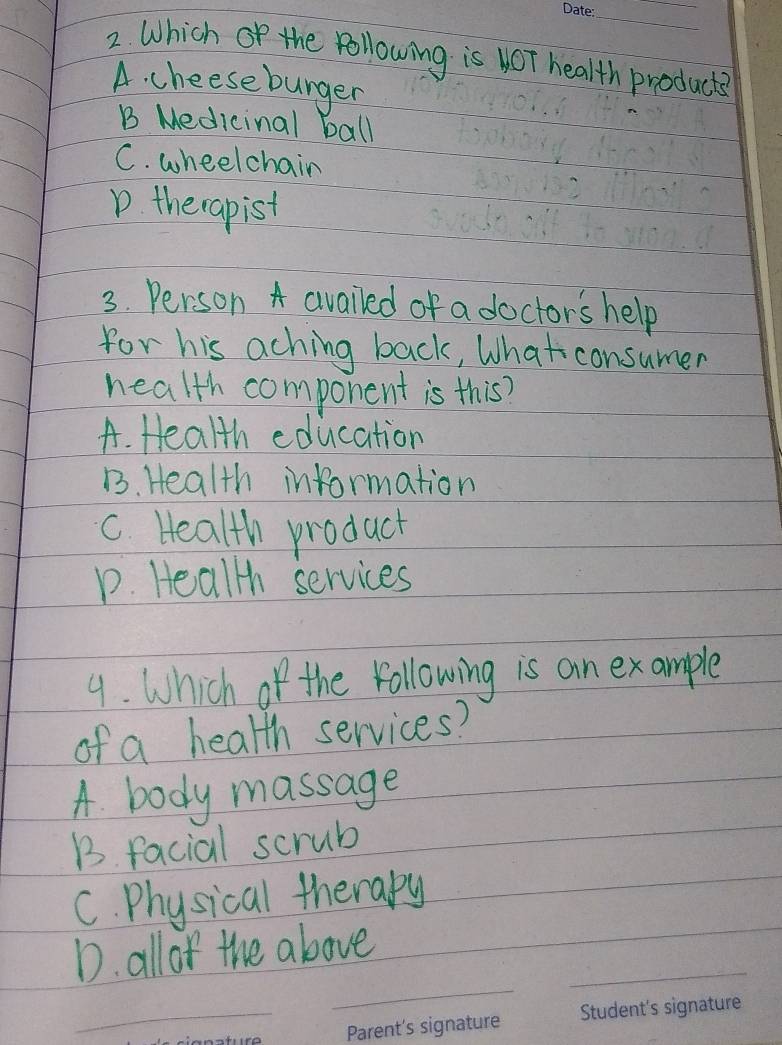 Date:
2. Which of the following is NOT health products?
A. cheeseburger
B Medicinal ball
C. wheelchair
D. therapist
3. Person A availed of a doctor's help
for his aching back, What consumer
health component is this?
A. Health education
B. Health information
C. Health product
D. Health services
4. Which of the following is an example
of a health services?
A. body massage
B. facial scrub
C. Physical therapy
D. all of the above
Parent's signature
Student's signature